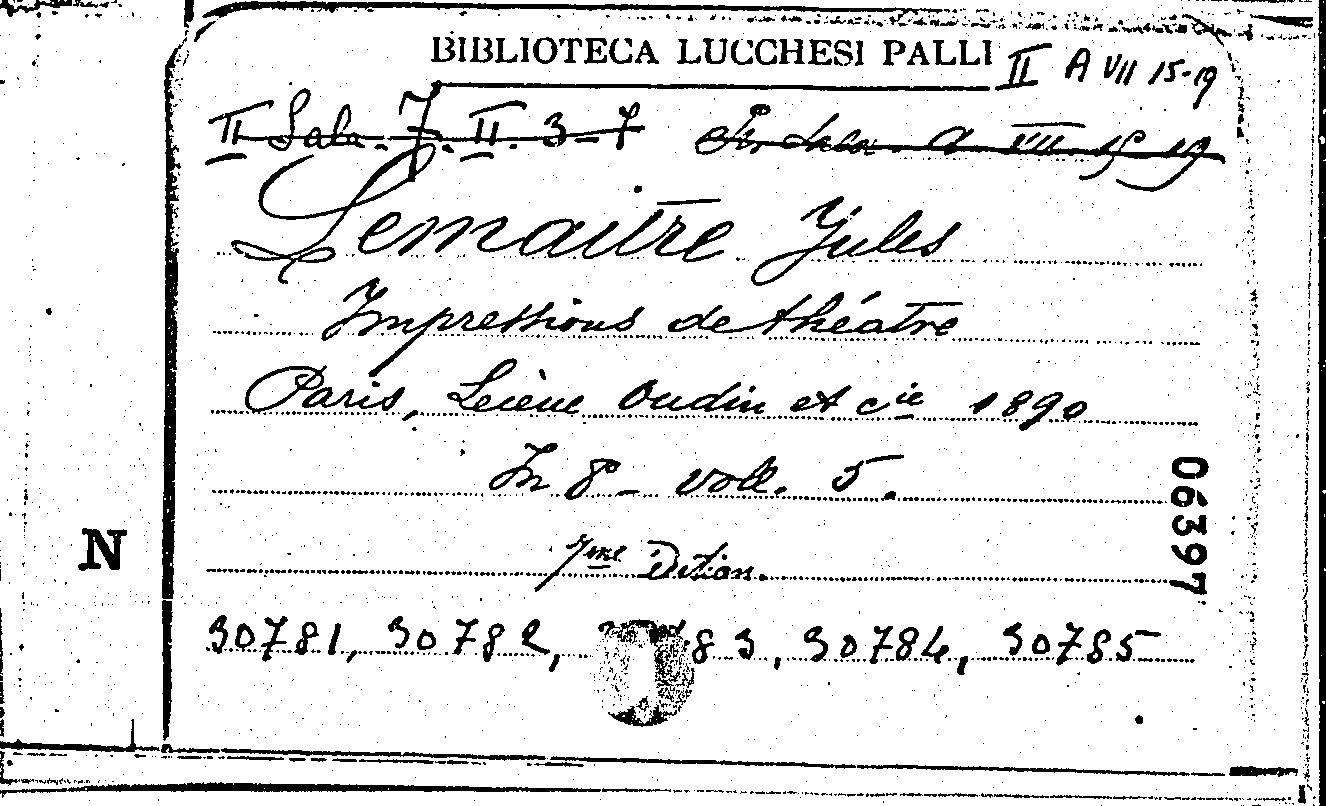 BIBLIOTECA LUCCHESI PALLI
II A VII 15-19
II Sala. 7. II. 3-7 II. Sala. A VII. 15-19
Lemaitre Jules
Impressions de théatre
Paris, Lecène Oudin et cie 1890
In 8º - voll. 5.
7me Édition.
30781, 30782, 83, 30784, 30785
06397
N